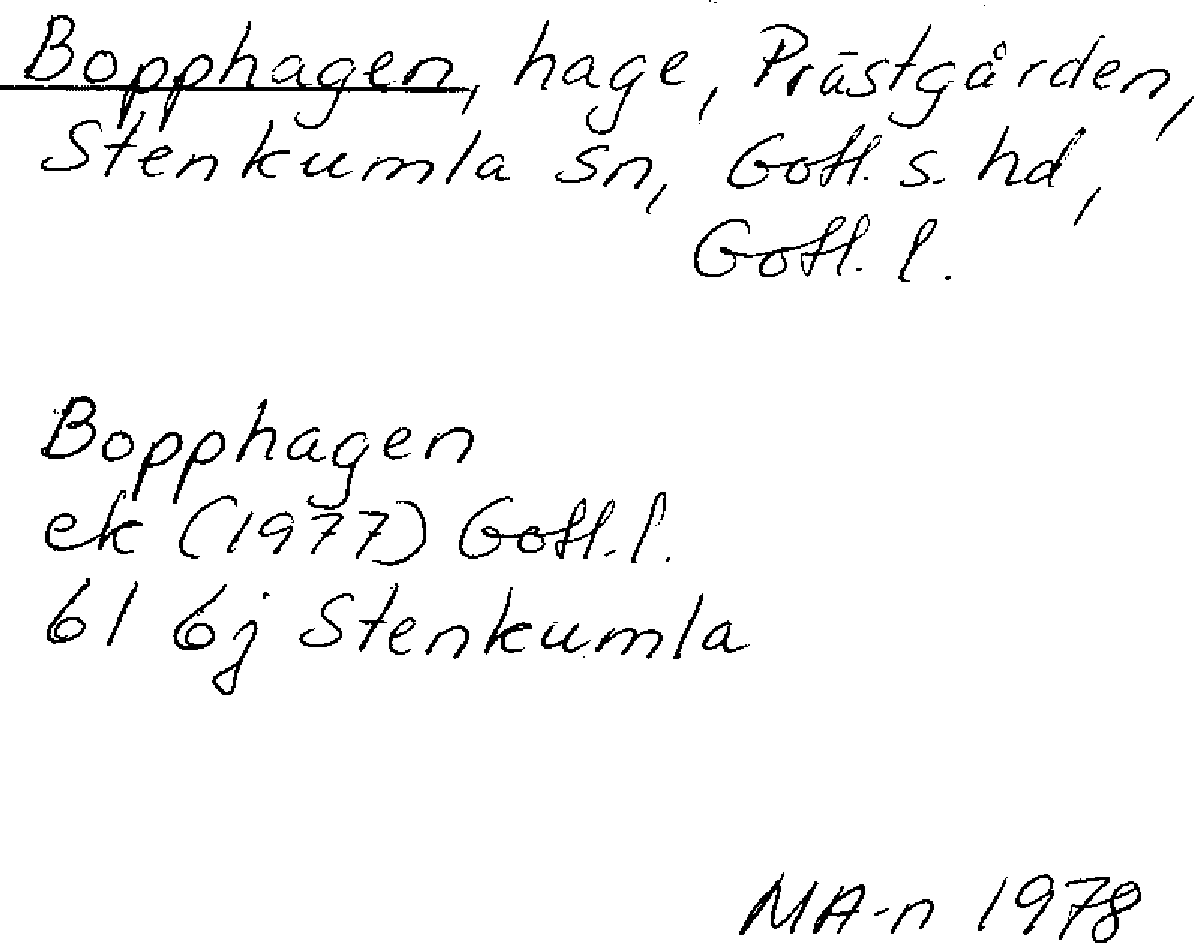 Bopphagen, hage, Prästgården,
Stenkumla sn, Gotl. s. hd,
Gotl. l.
Bopphagen
ek (1977) Gotl. l.
6I 6j Stenkumla
MA-n 1978